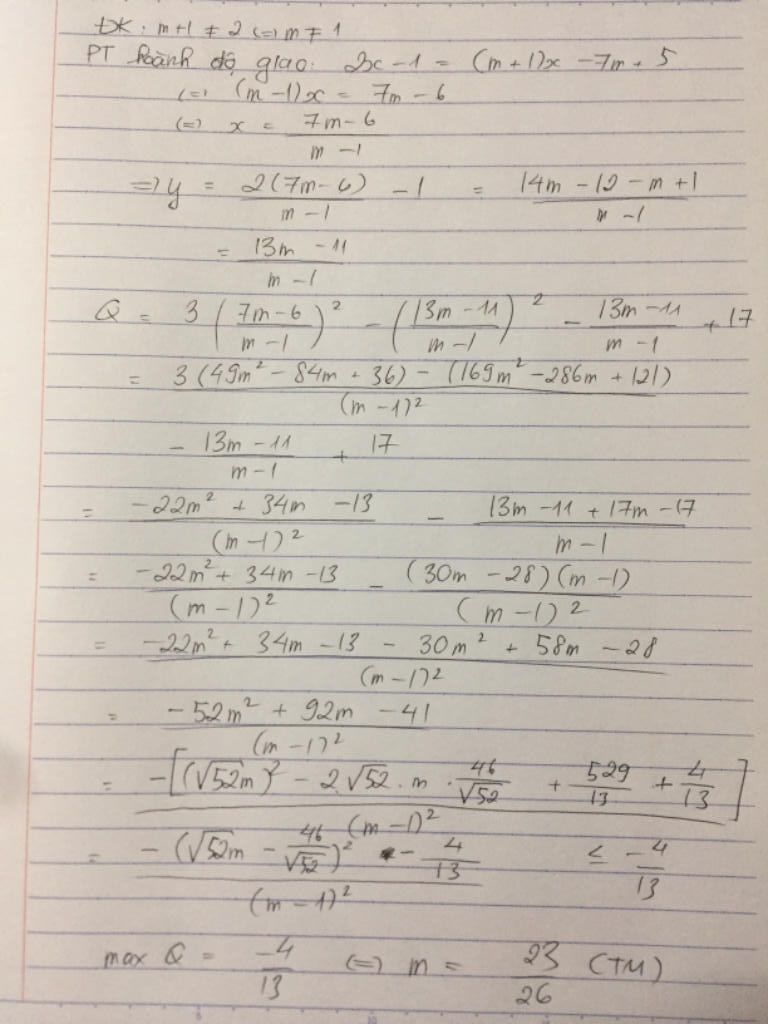 ĐK: m+1 ≠ 2 (=) m ≠ 1
PT hoành độ giao: 2x - 1 = (m+1)x - 7m + 5
(=) (m-1)x = 7m - 6
(=) x = \frac{7m-6}{m-1}
=) y = \frac{2(7m-6)}{m-1} - 1 = \frac{14m - 12 - m + 1}{m-1}
= \frac{13m - 11}{m-1}
Q = 3 \left(\frac{7m-6}{m-1}\right)^2 - \left(\frac{13m-11}{m-1}\right)^2 - \frac{13m-11}{m-1} + 17
= \frac{3(49m^2 - 84m + 36) - (169m^2 - 286m + 121)}{(m-1)^2}
- \frac{13m-11}{m-1} + 17
= \frac{-22m^2 + 34m - 13}{(m-1)^2} - \frac{13m - 11 + 17m - 17}{m-1}
= \frac{-22m^2 + 34m - 13}{(m-1)^2} - \frac{(30m - 28)(m-1)}{(m-1)^2}
= \frac{-22m^2 + 34m - 13 - 30m^2 + 58m - 28}{(m-1)^2}
= \frac{-52m^2 + 92m - 41}{(m-1)^2}
= \frac{-\left[(\sqrt{52}m)^2 - 2\sqrt{52}.m.\frac{46}{\sqrt{52}} + \frac{529}{13} + \frac{4}{13}\right]}{(m-1)^2}
= \frac{-(\sqrt{52}m - \frac{46}{\sqrt{52}})^2 - \frac{4}{13}}{(m-1)^2} ≤ \frac{-4}{13}
max Q = \frac{-4}{13} (=) m = \frac{23}{26} (TM)